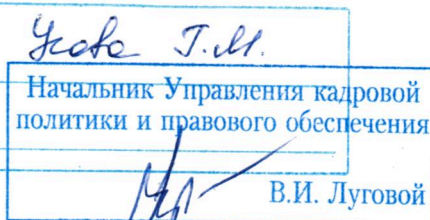 Т.М.
Начальник Управления кадровой
политики и правового обеспечения
В.И. Луговой